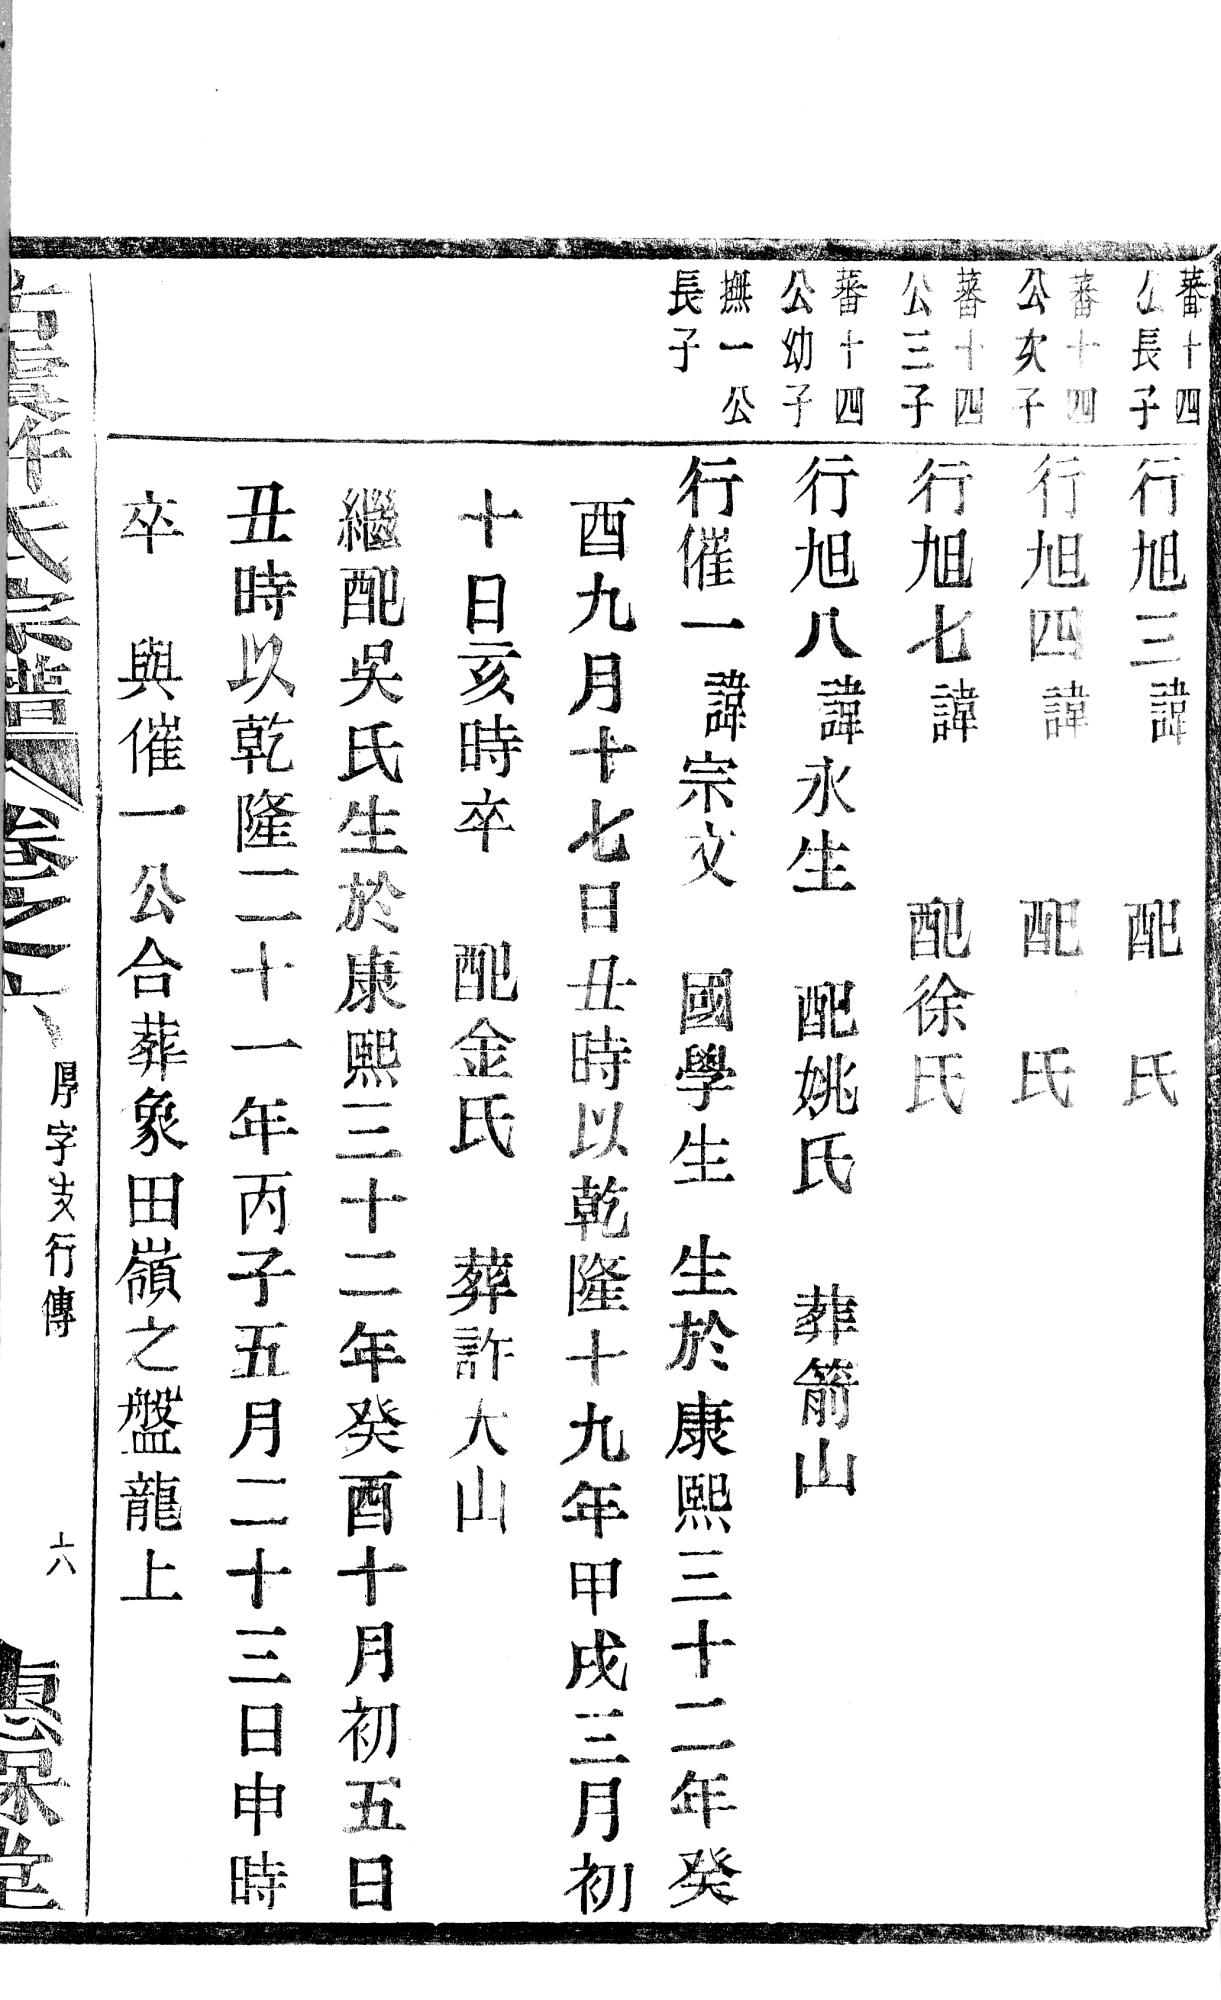 蕃十四
公長子
行旭三 諱 配 氏
蕃十四
公次子
行旭四 諱 配 氏
蕃十四
公三子
行旭七 諱 配徐氏
蕃十四
公幼子
行旭八 諱永生 配姚氏 葬箭山
撫一公
長子
行催一 諱宗文 國學生 生於康熙三十二年癸
酉九月十七日丑時以乾隆十九年甲戌三月初
十日亥時卒 配金氏 葬許大山
繼配吳氏生於康熙三十二年癸酉十月初五日
丑時以乾隆二十一年丙子五月二十三日申時
卒 與催一公合葬象田嶺之盤龍上
氏宗譜 卷之六 厚字支行傳 六 堂